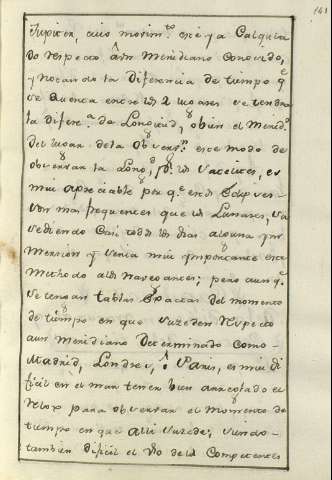 141
Jupiter, cuio movim.to esté ya Calcula
do respecto à un Meridiano Conocido,
y notando la Diferencia de tiempo q.e
se encuentra entre los 2 lugares se tendra
la difere.a de Longitud, ò bien el Merid.o
del lugar de la Observ.n este modo de
observar la Long.d p.r los Satelites, es
mui apreciable por q.e en ellos Eclipses
son mas frequentes que los Lunares, su
cediendo Casi todos los dias alguna
Mersion y venia mui importante este
Methodo a los Navegantes; pero aunq.e
se tengan tablas Exactas del momento
de tiempo en que suzeden respecto
a un Meridiano Determinado como
Madrid, Londres, ò Paris, es mui di
ficil en el mar tener bien arreglado el
relox para observar el Momento de
tiempo en que alli suzede, siendo
tambien dificil el Uso de los Competentes